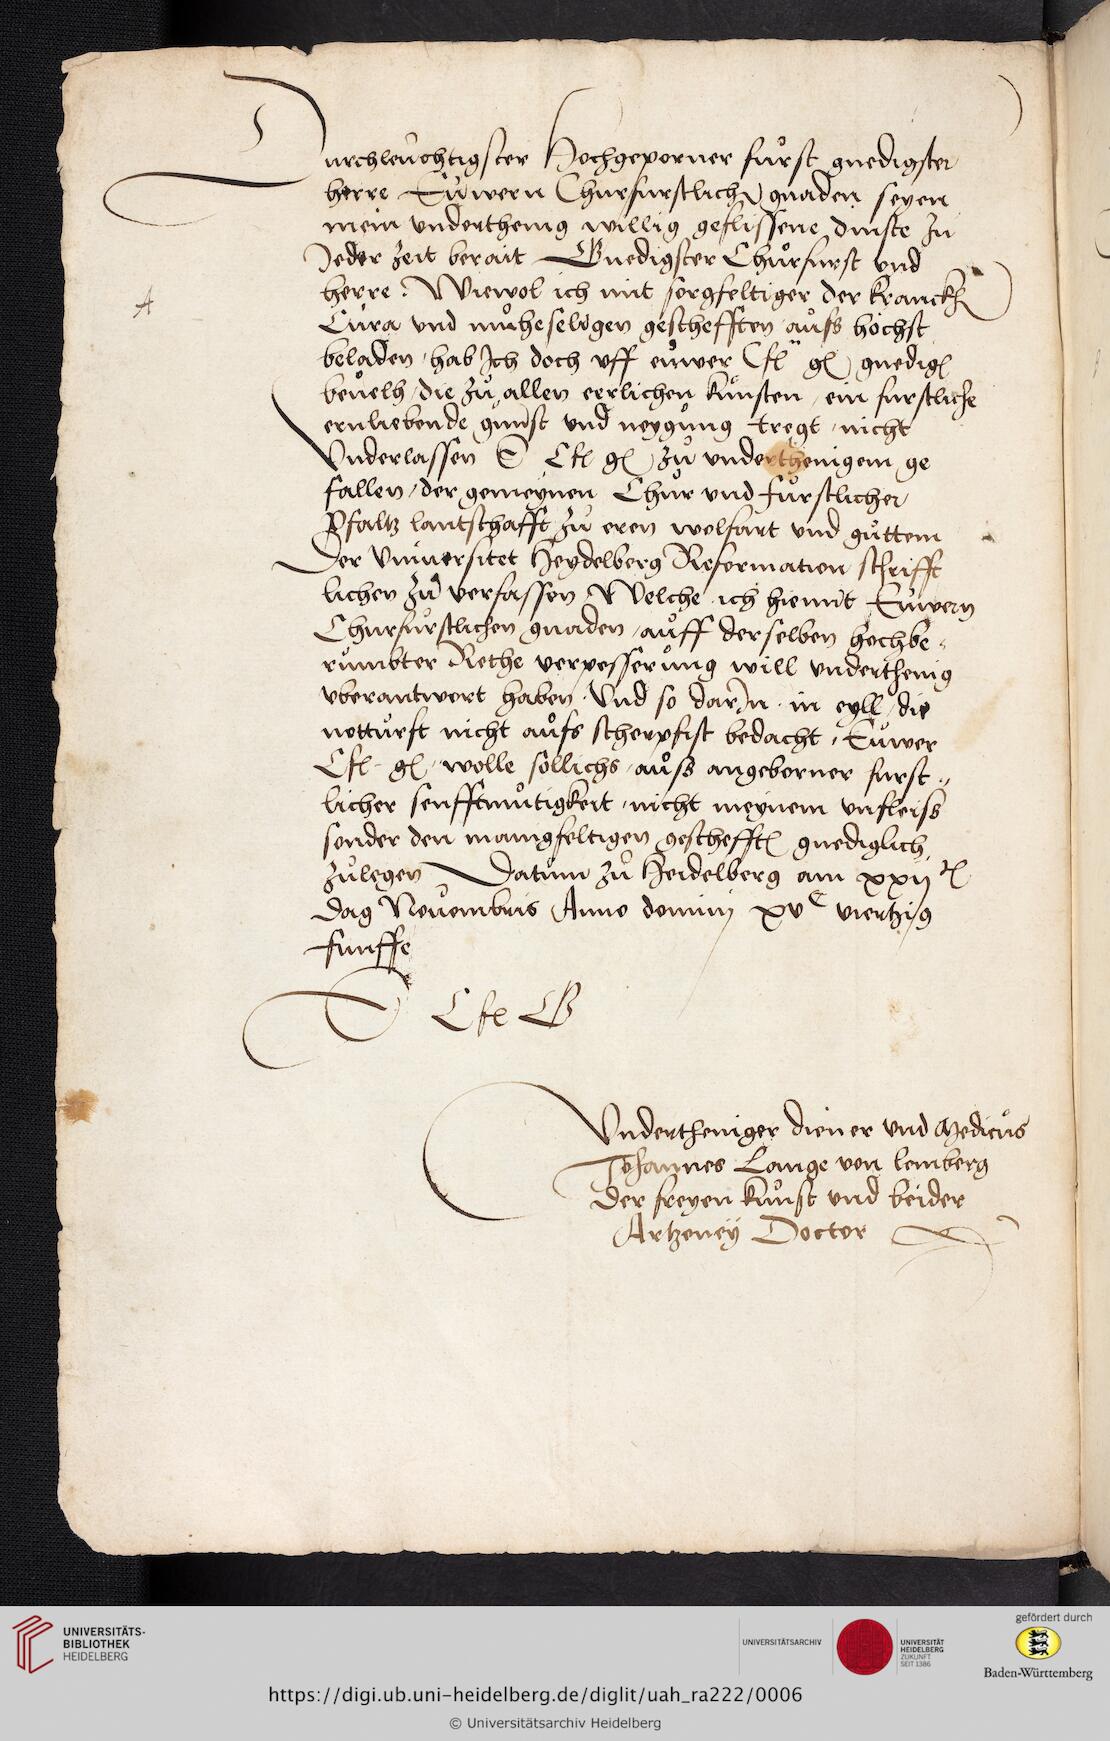 Durchleuchtigster Hochgeporner fürst gnedigster
herre Euwern Churfurstlichen gnaden seyen
mein underthenig willig geflissene dinste zu
Jeder zeit berait Gnedigster Churfurst und
herre. Wiewol ich mit sorgfeltiger der kranckh
A
Cura und muheseligen geschefften aufs höchst
beladen, hab Ich doch uff euwer Cfl gl gnedigl
beuelh, die zu allen eerlichen kunsten, ein furstliche
ernliebende gunst und neygung tregt, nicht
Vnderlassen E Cfl gl zu underthenigem ge
fallen, der gemeynen Chur und furstlicher
Pfaltz lantschafft zu eren wolfart und guttem
Der Vniuersitet Heydelberg Reformation schrifft
lichen zu verfassen Welche ich hiemit Euwern
Churfurstlichen gnaden, auff derselben hochbe-
rumbter Rethe verpesserung will underthenig
vberantwort haben. Vnd so darJn in eyll, die
notturft nicht aufs scherpfist bedacht, Euwer
Cfl gl wolle söllichs auß angeborner furst-
licher senfftmutigkeit, nicht meynem unfleiß
sonder den manigfeltigen gescheftl gnediglich
zulegen Datum zu Heidelberg am xxij tl
dag Nouembris Anno dominj xvc viertzig
funffe
E Cfl G
Vndertheniger diener und Medicus
Johannes Lange von lemberg
der freyen kunst und beider
Artzeney Doctor
UNIVERSITÄTS-
BIBLIOTHEK
HEIDELBERG
UNIVERSITÄTSARCHIV
UNIVERSITÄT
HEIDELBERG
ZUKUNFT
SEIT 1386
gefördert durch
Baden-Württemberg
https://digi.ub.uni-heidelberg.de/diglit/uah_ra222/0006
© Universitätsarchiv Heidelberg